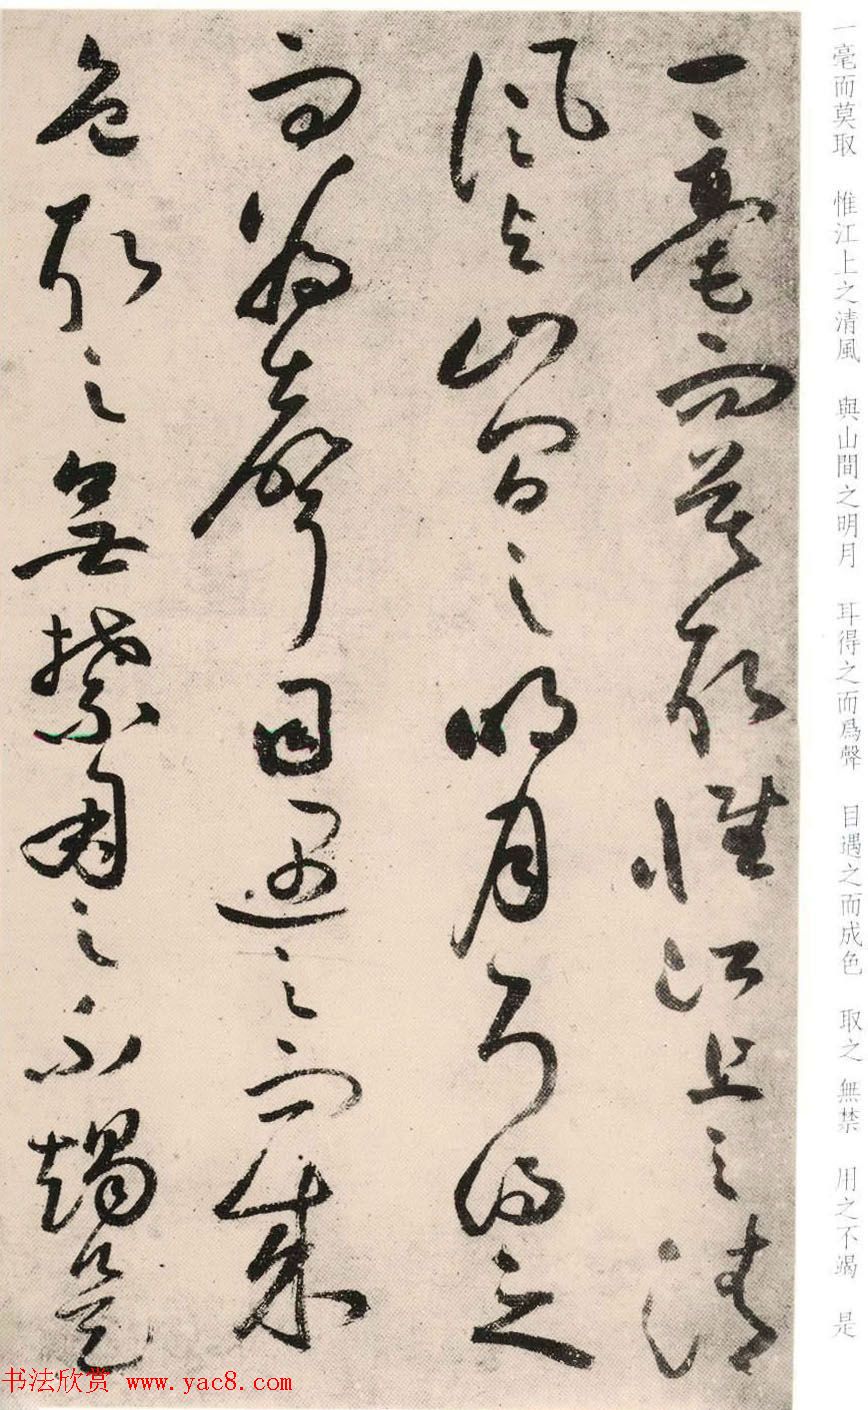 一毫而莫取 惟江上之清風 與山間之明月 耳得之而爲聲 目遇之而成色 取之無禁 用之不竭 是
一毫而莫取惟江上之清
風與山間之明月耳得之
而爲聲目遇之而成
色取之無禁用之不竭是
书法欣赏 www.yac8.com